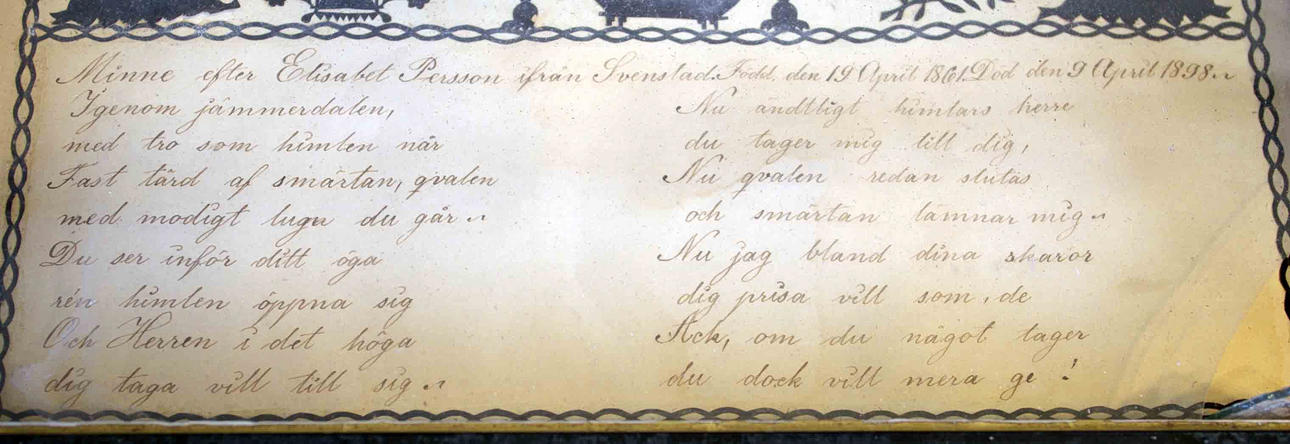 Minne efter Elisabet Persson ifrån Svenstad. Född. den 19 April 1861. Död den 9 April 1898.
Igenom jämmerdalen,
med tro som himlen når
Fast tärd af smärtan, qvalen
med modigt lugn du går
Du ser inför ditt öga
rén himlen öppna sig
Och Herren i det höga
dig taga vill till sig
Nu ändtligt himlars herre
du tager mig till dig,
Nu qvalen redan slutas
och smärtan lämnar mig
Nu jag bland dina skaror
dig prisa vill som de
Ack, om du något tager
du dock vill mera ge !